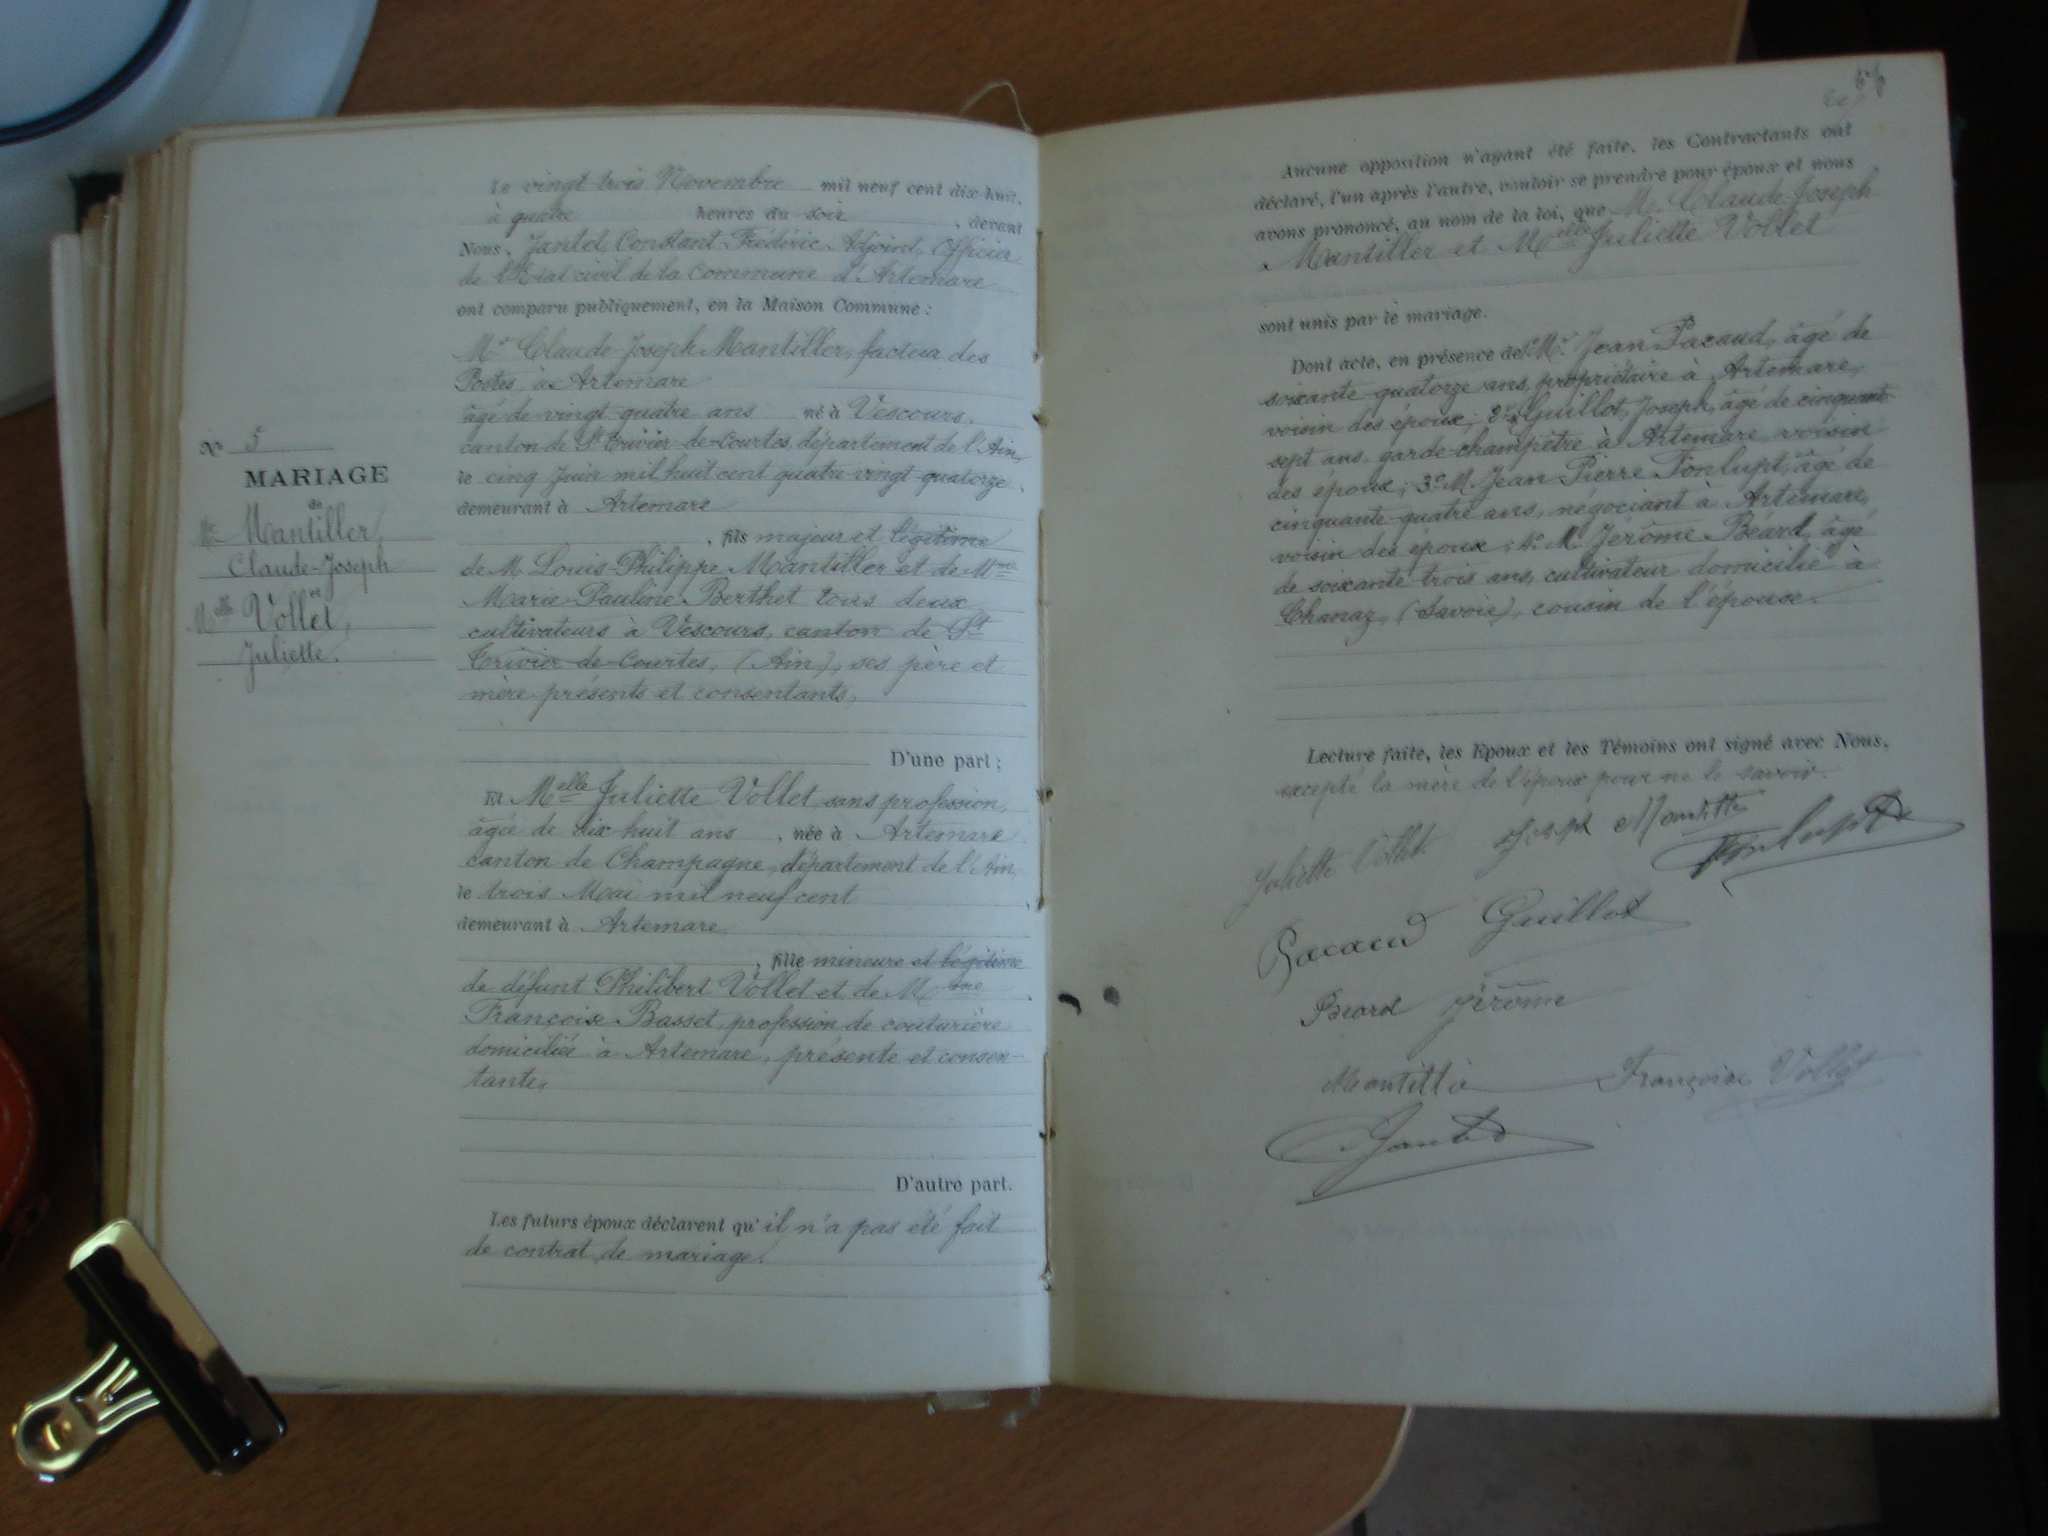 N° 5
MARIAGE
de
Mr Mantiller,
Claude-Joseph
et
Melle Vollet,
Juliette.
le vingt trois Novembre mil neuf cent dix-huit,
à quatre heures du soir, devant
Nous, Jantet, Constant-Frédéric, Adjoint, Officier
de l'Etat civil de la commune d'Artemare
ont comparu publiquement, en la Maison Commune :
Mr Claude-Joseph Mantiller, facteur des
Postes, à Artemare
âgé de vingt-quatre ans né à Vescours,
canton de St Trivier-de-Courtes, département de l'Ain,
le cinq Juin mil huit cent quatre-vingt-quatorze,
demeurant à Artemare
, fils majeur et légitime
de M Louis-Philippe Mantiller et de Mme
Marie-Pauline Berthet tous deux
cultivateurs à Vescours, canton de St
Trivier-de-Courtes, (Ain), ses père et
mère présents et consentants,
D'une part ;
Et Melle Juliette Vollet sans profession,
âgée de dix-huit ans, née à Artemare
canton de Champagne, département de l'Ain,
le trois Mai mil neuf cent
demeurant à Artemare
, fille mineure et légitime
de défunt Philibert Vollet et de Mme
Françoise Basset, profession de couturière
domiciliée à Artemare, présente et consen-
tante,
D'autre part.
Les futurs époux déclarent qu'il n'a pas été fait
de contrat de mariage.
Aucune opposition n'ayant été faite, les Contractants ont
déclaré, l'un après l'autre, vouloir se prendre pour époux et nous
avons prononcé, au nom de la loi, que M. Claude-Joseph
Mantiller et Melle Juliette Vollet
sont unis par le mariage.
Dont acte, en présence de 1° Mr Jean Pacaud, âgé de
soixante-quatorze ans, propriétaire à Artemare,
voisin des époux ; 2° Guillot, Joseph, âgé de cinquante
sept ans, garde-champêtre à Artemare voisin
des époux ; 3° M. Jean-Pierre Fonlupt, âgé de
cinquante-quatre ans, négociant à Artemare,
voisin des époux ; 4° M. Jérôme Béard, âgé
de soixante trois ans, cultivateur domicilié à
Chanaz, (Savoie), cousin de l'épouse.
Lecture faite, les Epoux et les Témoins ont signé avec Nous,
excepté la mère de l'époux pour ne le savoir.
Juliette Vollet Joseph Mantille
Fonlupt
Pacaud Guillot
Béard Jérôme
Mantille Françoise Vollet
Jantet